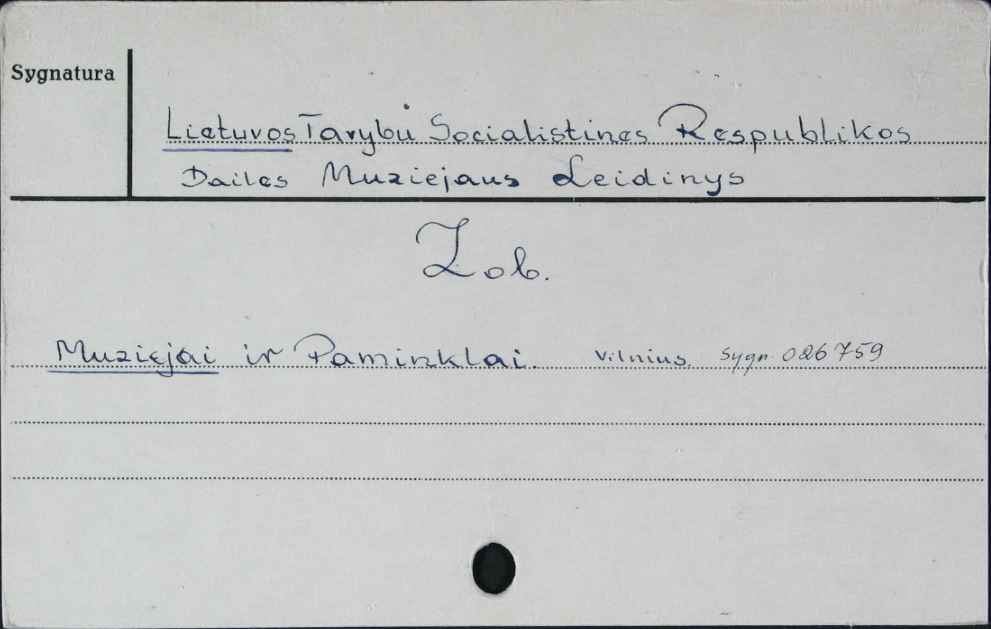 Sygnatura
Lietuvos Tarybu Socialistines Respublikos
Dailes Muziejaus Leidinys
Zob.
Muziejai ir Paminklai. Vilnius. Sygn. 026759